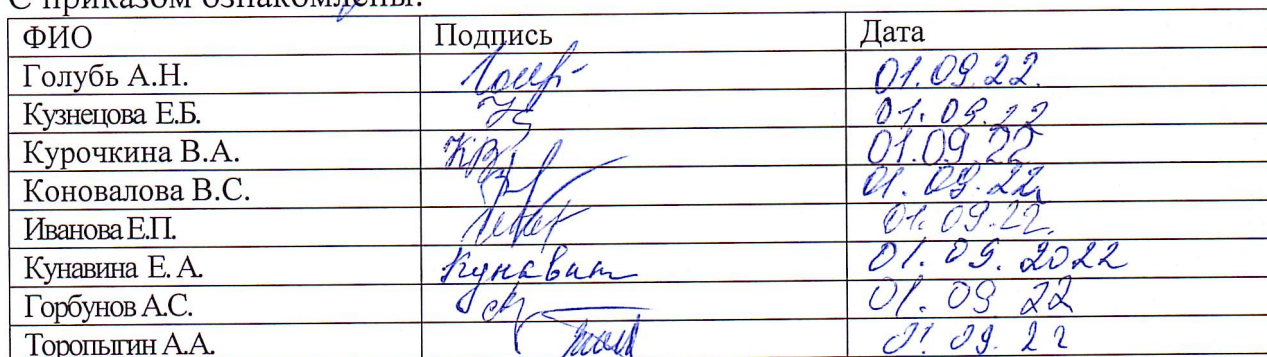 С приказом ознакомлены:
ФИО Подпись Дата
Голубь А.Н. 01.09.22.
Кузнецова Е.Б. 01.09.22
Курочкина В.А. КВ 01.09.22
Коновалова В.С. 01.09.22
Иванова Е.П. 01.09.22.
Кунавина Е. А. Кунавин 01.09.2022
Горбунов А.С. 01.09 22
Торопыгин А.А. 01.09.22